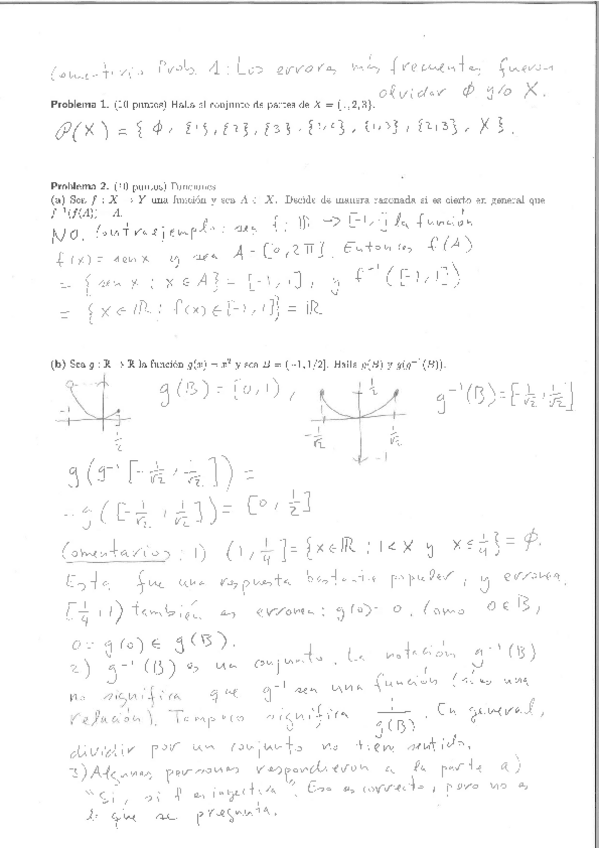 Comentario Prob. 1: Los errores más frecuentes fueron
olvidar ∅ y/o X.
Problema 1. (10 puntos) Halla el conjunto de partes de X = {1, 2, 3}.
P(X) = { ∅, {1}, {2}, {3}, {1,2}, {1,3}, {2,3}, X }.
Problema 2. (10 puntos) Funciones
(a) Sea f : X → Y una función y sea A ⊂ X. Decide de manera razonada si es cierto en general que
f⁻¹(f(A)) = A.
NO. Contraejemplo: sea f: ℝ → [-1,1] la función
f(x) = sen x y sea A = [0, 2π]. Entonces f(A)
= { sen x : x ∈ A } = [-1,1], y f⁻¹([-1,1])
= { x ∈ ℝ : f(x) ∈ [-1,1] } = ℝ
(b) Sea g : ℝ → ℝ la función g(x) = x² y sea B = (−1, 1/2]. Halla g(B) y g(g⁻¹(B)).
g(B) = [0,1), g⁻¹(B) = [-1/√2, 1/√2]
-1 1/2
1/2 -1/√2 1/√2 -1
g(g⁻¹[-1/√2, 1/√2]) =
= g([-1/√2, 1/√2]) = [0, 1/2]
Comentarios: 1) (1, 1/4] = {x ∈ ℝ : 1 < x y x ≤ 1/4} = ∅.
Esta fue una respuesta bastante popular, y erronea.
[1/4, 1) también es erronea: g(0) = 0. Como 0 ∈ B,
0 = g(0) ∈ g(B).
2) g⁻¹(B) es un conjunto. La notación g⁻¹(B)
no significa que g⁻¹ sea una función (sino una
relación). Tampoco significa 1/g(B). En general,
dividir por un conjunto no tiene sentido.
3) Algunas personas respondieron a la parte a)
"Si, si f es inyectiva". Eso es correcto, pero no es
lo que se pregunta.